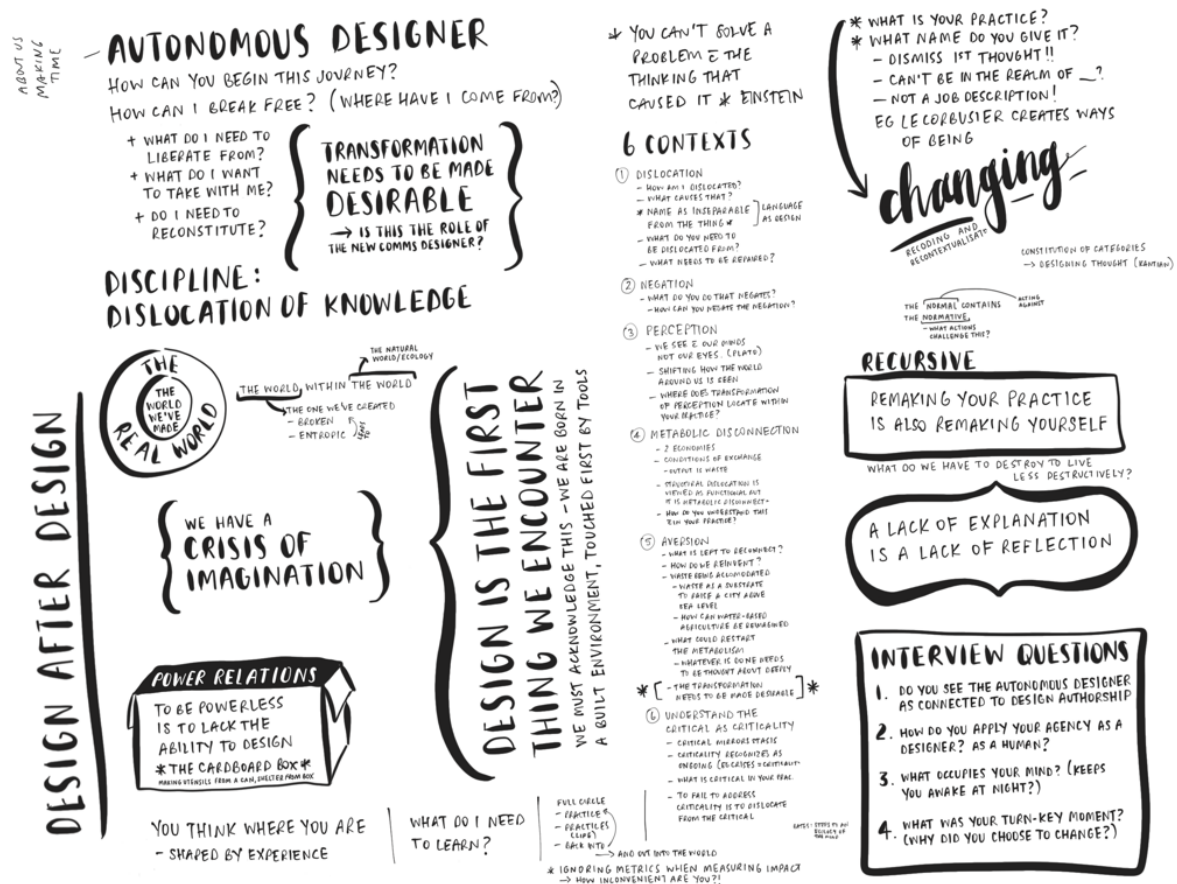 ABOUT US
MAKING
TIME
— AUTONOMOUS DESIGNER
HOW CAN YOU BEGIN THIS JOURNEY?
HOW CAN I BREAK FREE? (WHERE HAVE I COME FROM?)
+ WHAT DO I NEED TO
LIBERATE FROM?
+ WHAT DO I WANT
TO TAKE WITH ME?
+ DO I NEED TO
RECONSTITUTE?
TRANSFORMATION
NEEDS TO BE MADE
DESIRABLE
→ IS THIS THE ROLE OF
THE NEW COMMS DESIGNER?
DISCIPLINE:
DISLOCATION OF KNOWLEDGE
DESIGN AFTER DESIGN
THE
REAL WORLD
THE
WORLD
WE'VE
MADE
THE NATURAL
WORLD/ECOLOGY
THE WORLD WITHIN THE WORLD
THE ONE WE'VE CREATED
- BROKEN
- ENTROPIC
WE HAVE A
CRISIS OF
IMAGINATION
POWER RELATIONS
TO BE POWERLESS
IS TO LACK THE
ABILITY TO DESIGN
*THE CARDBOARD BOX*
MAKING UTENSILS FROM A CAN, SHELTER FROM BOX
DESIGN IS THE FIRST
THING WE ENCOUNTER
WE MUST ACKNOWLEDGE THIS - WE ARE BORN IN
A BUILT ENVIRONMENT, TOUCHED FIRST BY TOOLS
YOU THINK WHERE YOU ARE
- SHAPED BY EXPERIENCE
WHAT DO I NEED
TO LEARN?
FULL CIRCLE
- PRACTICE
- PRACTICES
- BACK INTO
→ AND OUT INTO THE WORLD
* IGNORING METRICS WHEN MEASURING IMPACT
→ HOW INCONVENIENT ARE YOU?!
* YOU CAN'T SOLVE A
PROBLEM c̄ THE
THINKING THAT
CAUSED IT * EINSTEIN
6 CONTEXTS
① DISLOCATION
- HOW AM I DISLOCATED?
- WHAT CAUSES THAT?
* NAME AS INSEPARABLE
FROM THE THING *
LANGUAGE
AS DESIGN
- WHAT DO YOU NEED TO
BE DISLOCATED FROM?
- WHAT NEEDS TO BE REPAIRED?
② NEGATION
- WHAT DO YOU DO THAT NEGATES?
- HOW CAN YOU NEGATE THE NEGATION?
③ PERCEPTION
- WE SEE c̄ OUR MINDS
NOT OUR EYES. (PLATO)
- SHIFTING HOW THE WORLD
AROUND US IS SEEN
- WHERE DOES TRANSFORMATION
OF PERCEPTION LOCATE WITHIN
YOUR PRACTICE?
④ METABOLIC DISCONNECTION
- 2 ECONOMIES
- CONDITIONS OF EXCHANGE
- OUTPUT IS WASTE
- STRUCTURAL DISLOCATION IS
VIEWED AS FUNCTIONAL BUT
IT IS METABOLIC DISCONNECT-
- HOW DO YOU UNDERSTAND THIS
IN YOUR PRACTICE?
⑤ AVERSION
- WHAT IS LEFT TO RECONNECT?
- HOW DO WE REINVENT?
- WASTE BEING ACCOMODATED
- WASTE AS A SUBSTRATE
TO RAISE A CITY ABOVE
SEA LEVEL
- HOW CAN WATER-BASED
AGRICULTURE BE REIMAGINED
- WHAT COULD RESTART
THE METABOLISM
- WHATEVER IS DONE NEEDS
TO BE THOUGHT ABOUT DEEPLY
* [ - THE TRANSFORMATION
NEEDS TO BE MADE DESIRABLE ] *
⑥ UNDERSTAND THE
CRITICAL AS CRITICALITY
- CRITICAL MIRRORS STASIS
- CRITICALITY RECOGNIZES AS
ONGOING
- WHAT IS CRITICAL IN YOUR PRAC.
- TO FAIL TO ADDRESS
CRITICALITY IS TO DISLOCATE
FROM THE CRITICAL
STEPS TO AN
ECOLOGY OF
THE MIND
* WHAT IS YOUR PRACTICE?
* WHAT NAME DO YOU GIVE IT?
- DISMISS 1ST THOUGHT!!
- CAN'T BE IN THE REALM OF __?
- NOT A JOB DESCRIPTION!
EG LE CORBUSIER CREATES WAYS
OF BEING
changing
RECODING AND
RECONTEXTUALISAT-
CONSTITUTION OF CATEGORIES
→ DESIGNING THOUGHT (KANTIAN)
THE NORMAL CONTAINS
ACTING
AGAINST
THE NORMATIVE
- WHAT ACTIONS
CHALLENGE THIS?
RECURSIVE
REMAKING YOUR PRACTICE
IS ALSO REMAKING YOURSELF
WHAT DO WE HAVE TO DESTROY TO LIVE
LESS DESTRUCTIVELY?
A LACK OF EXPLANATION
IS A LACK OF REFLECTION
INTERVIEW QUESTIONS
1. DO YOU SEE THE AUTONOMOUS DESIGNER
AS CONNECTED TO DESIGN AUTHORSHIP
2. HOW DO YOU APPLY YOUR AGENCY AS A
DESIGNER? AS A HUMAN?
3. WHAT OCCUPIES YOUR MIND? (KEEPS
YOU AWAKE AT NIGHT?)
4. WHAT WAS YOUR TURN-KEY MOMENT?
(WHY DID YOU CHOOSE TO CHANGE?)